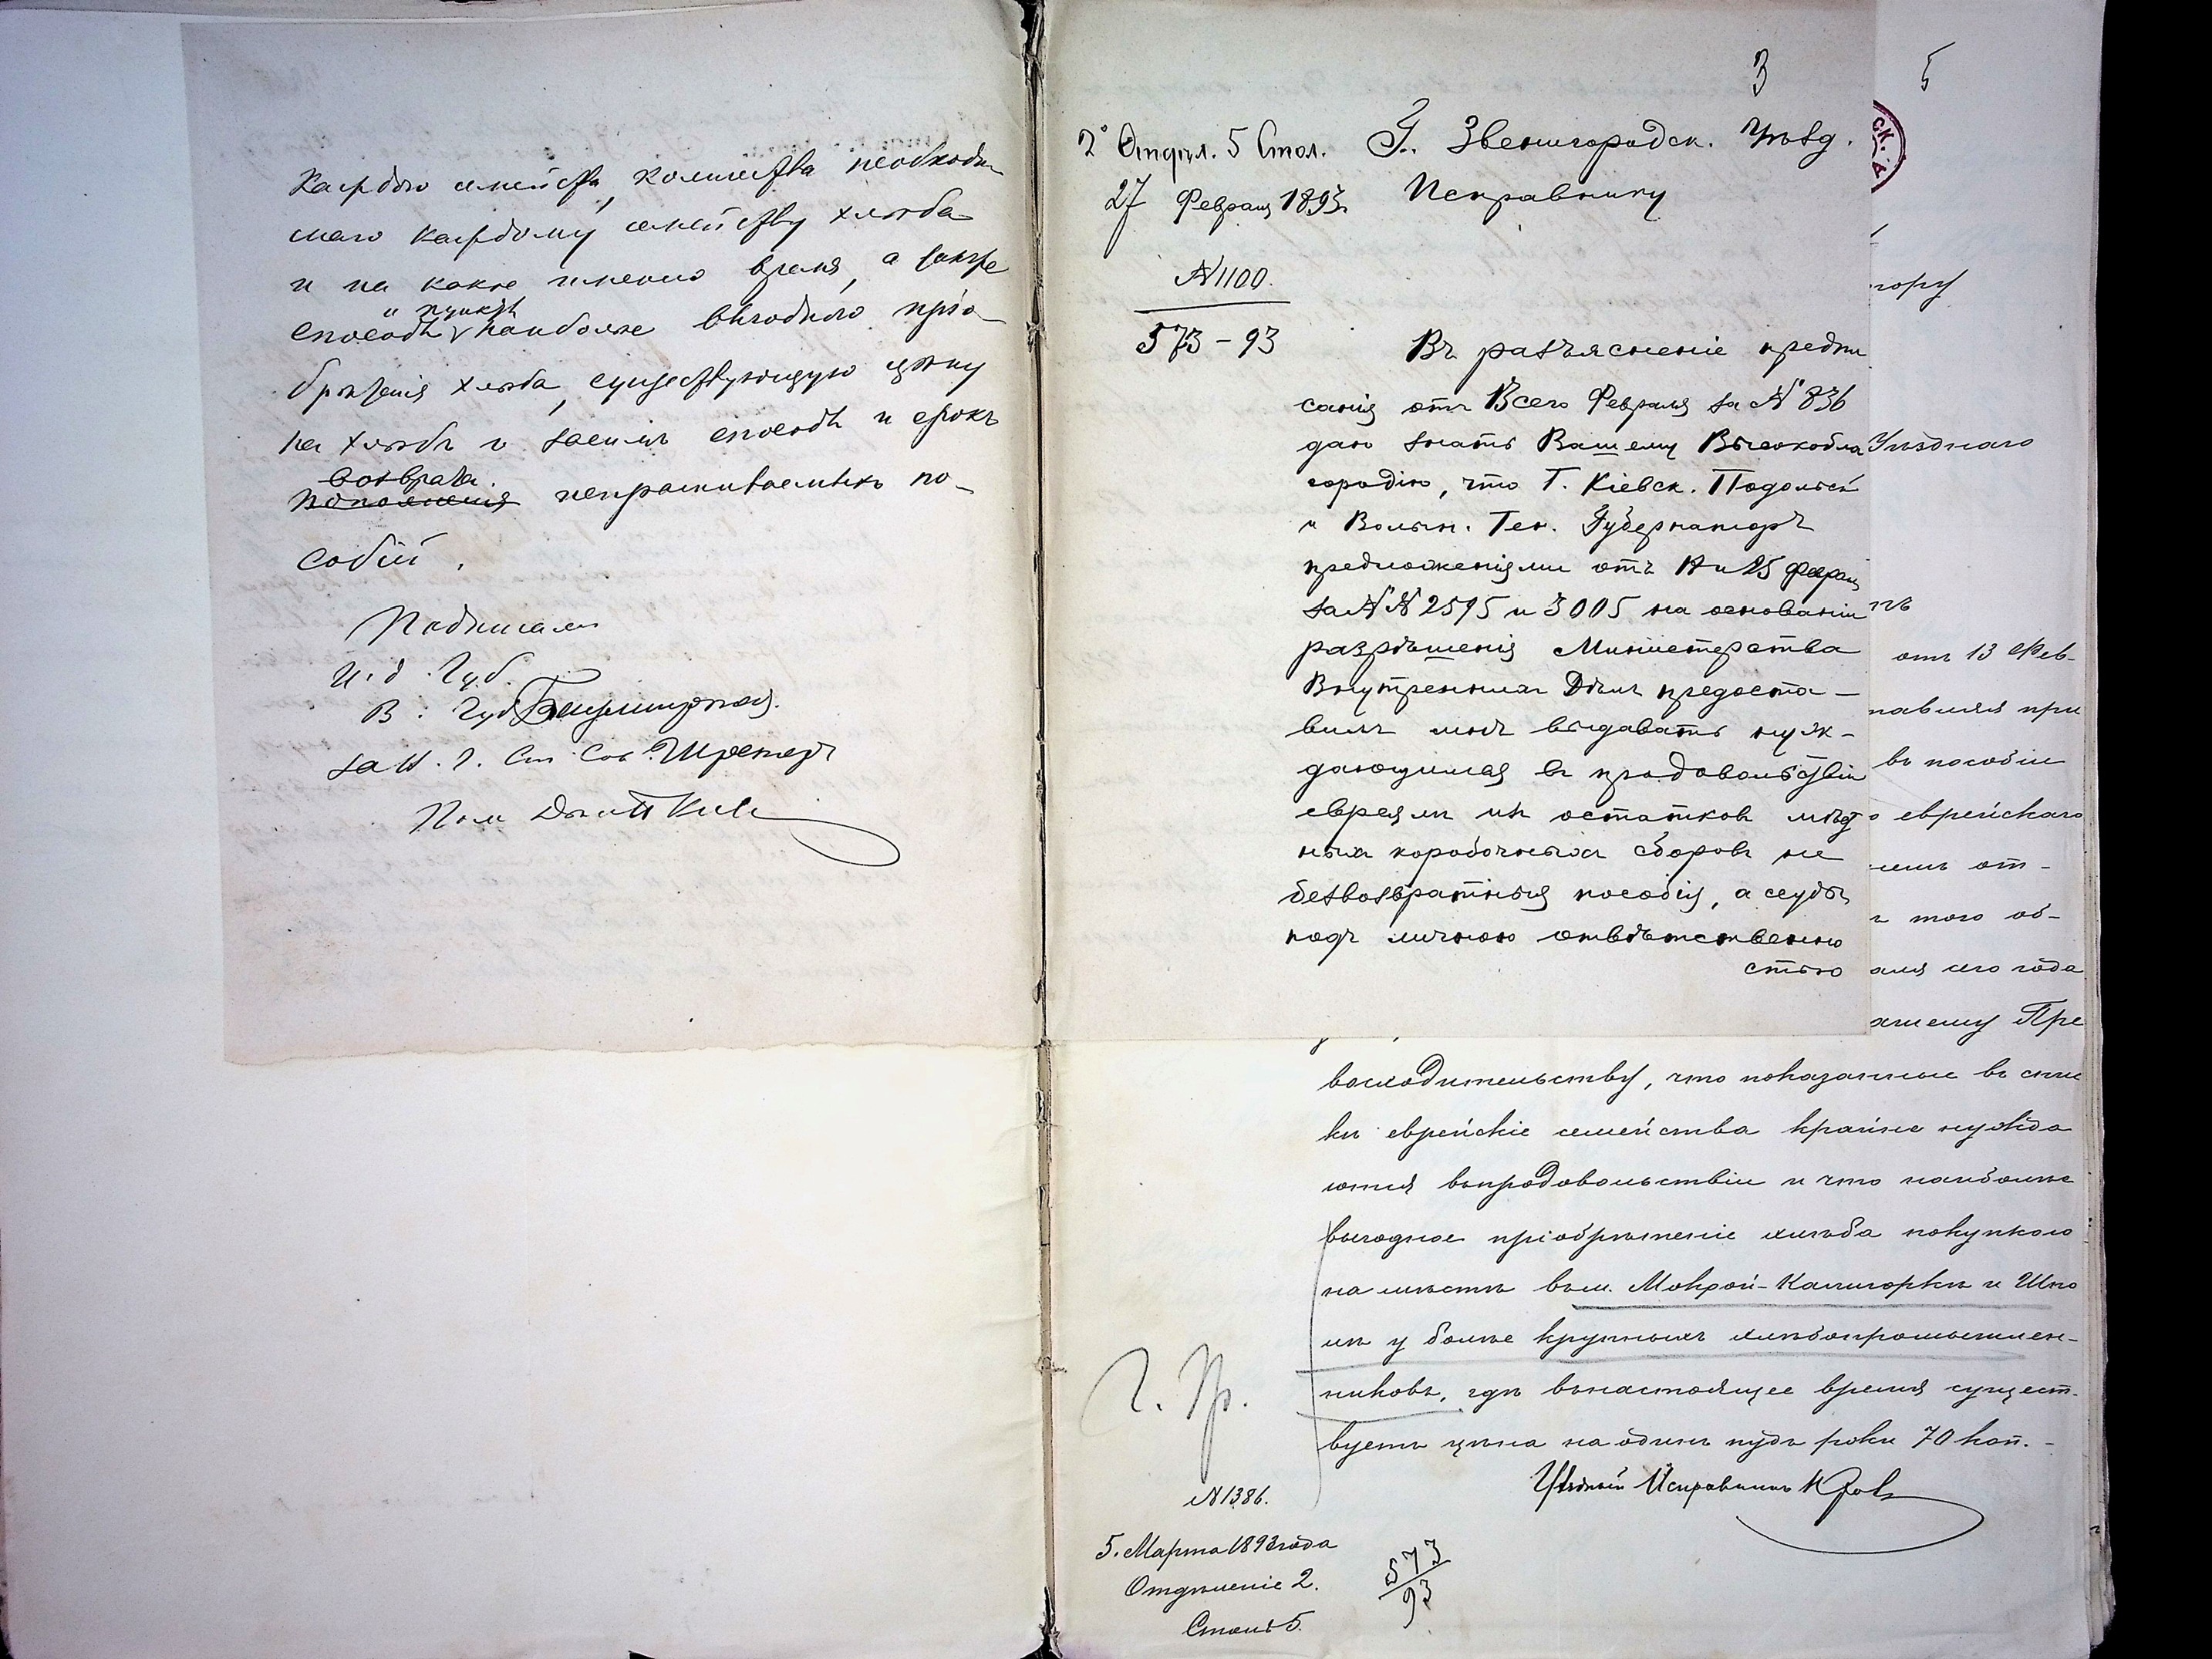 каждого семейства, количества необходи-
маго каждому семейству хлѣба
и на какое именно время, а также
и пунктъ
способъ наиболѣе выгоднаго пріо-
брѣтенія хлѣба, существующую цѣну
на хлѣбъ и засимъ способъ и срокъ
возврата
пополненія испрашиваемыхъ по-
собій.
Подписали
И. д. Губ.
В: Губ
за Н. 2. Ст. Сов. Шретеръ
3
2 Отдѣл. 5 Стол.
27 Февраля 1893
№ 1100.
573-93
Г. Звенигородск. Уѣзд.
Исправнику
Въ разъясненіе предпи
санія отъ 13 сего Февраля за № 836
даю знать Вашему Высокобла
городію, что Г. Кіевск. Подольск
и Волын. Ген. Губернаторъ
предложеніями отъ 17 и 25 Февраля
за №№ 2595 и 3005 на основаніи
разрѣшенія Министерства
Внутреннихъ Дѣлъ предоста-
вилъ мнѣ выдавать нуж-
дающимся въ продовольствіи
евреямъ изъ остатковъ мѣст
ныхъ коробочныхъ сборовъ не
безвозвратныя пособія, а ссуды
подъ личною отвѣтственно
стью
5
СК.
А
тору
Уѣзднаго
отъ 13 Фев-
павляя при
въ пособіи
еврейскаго
емъ от-
того об-
аля сего года
ашему Пре
восходительству, что показанные въ спис
кѣ еврейскіе семейства крайне нужда
ются въ продовольствіи и что наиболѣе
выгодное пріобрѣтеніе хлѣба покупкою
на мѣстѣ въ м. Мокрой-Калигоркѣ и Шпо
лѣ у болѣе крупныхъ хлѣбопромышлен-
никовъ, гдѣ въ настоящее время сущест-
вуетъ цѣна на одинъ пудъ ржи 70 коп.-
Уѣздный Исправникъ
Г. Пр.
№ 1386.
5. Марта 1893 года
Отдѣленіе 2.
Столъ 5.
573
93